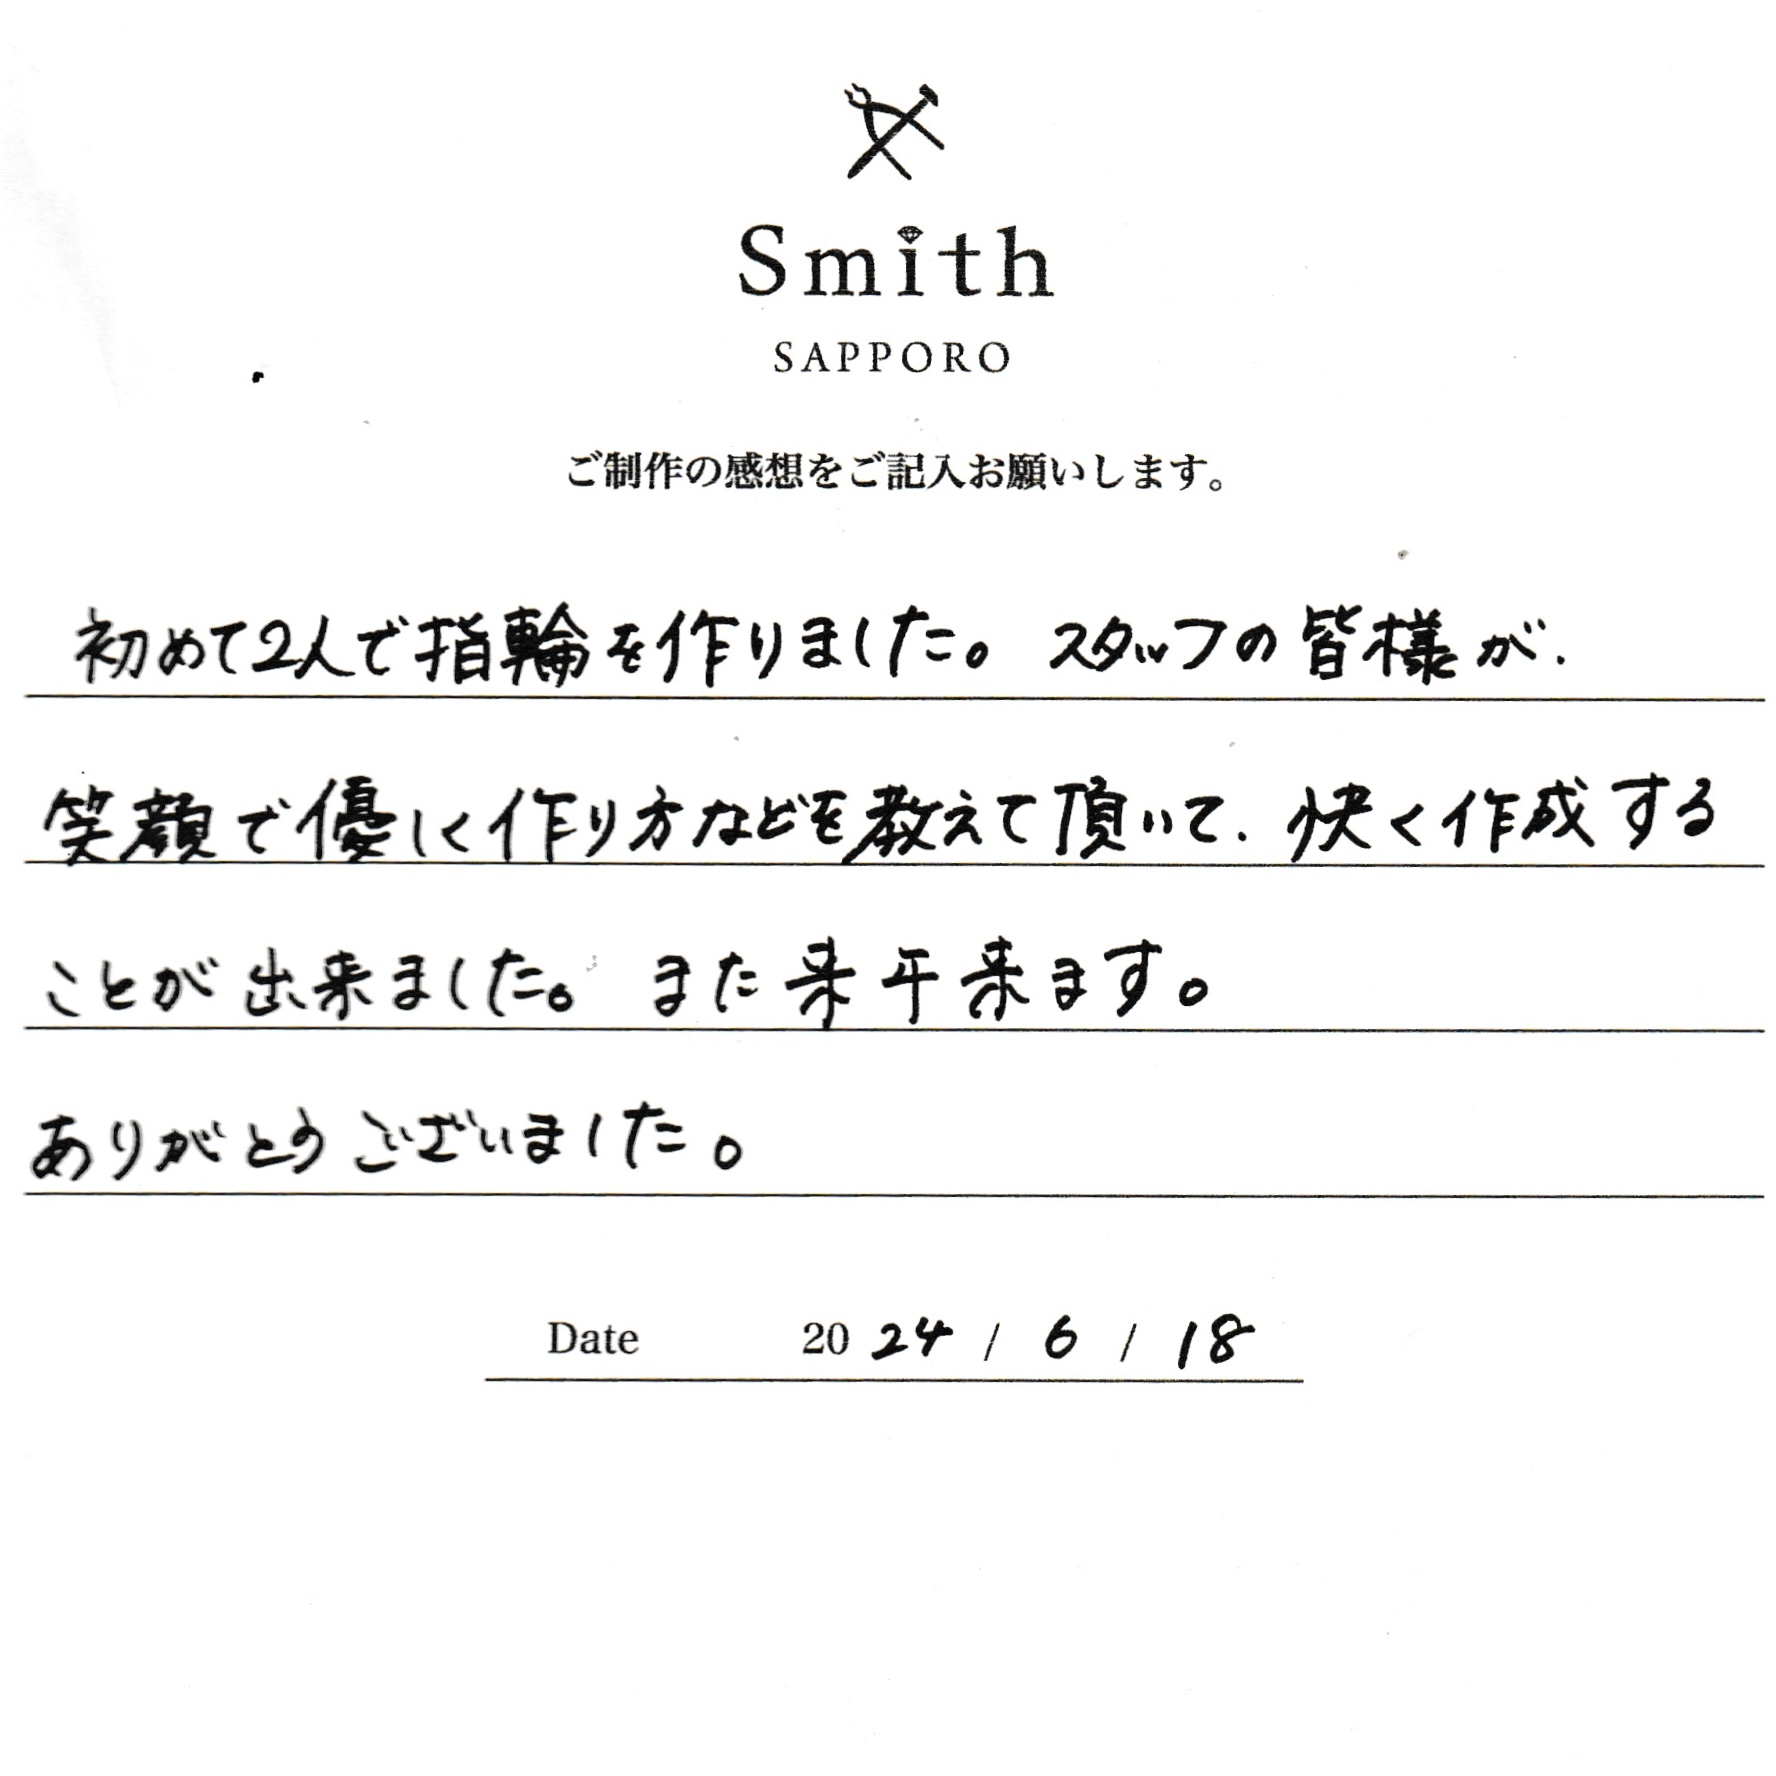 Smith
SAPPORO
ご制作の感想をご記入お願いします。
初めて2人で指輪を作りました。スタッフの皆様が、
笑顔で優しく作り方などを教えて頂いて、快く作成する
ことが出来ました。また来年来ます。
ありがとうございました。
Date 2024 / 6 / 18